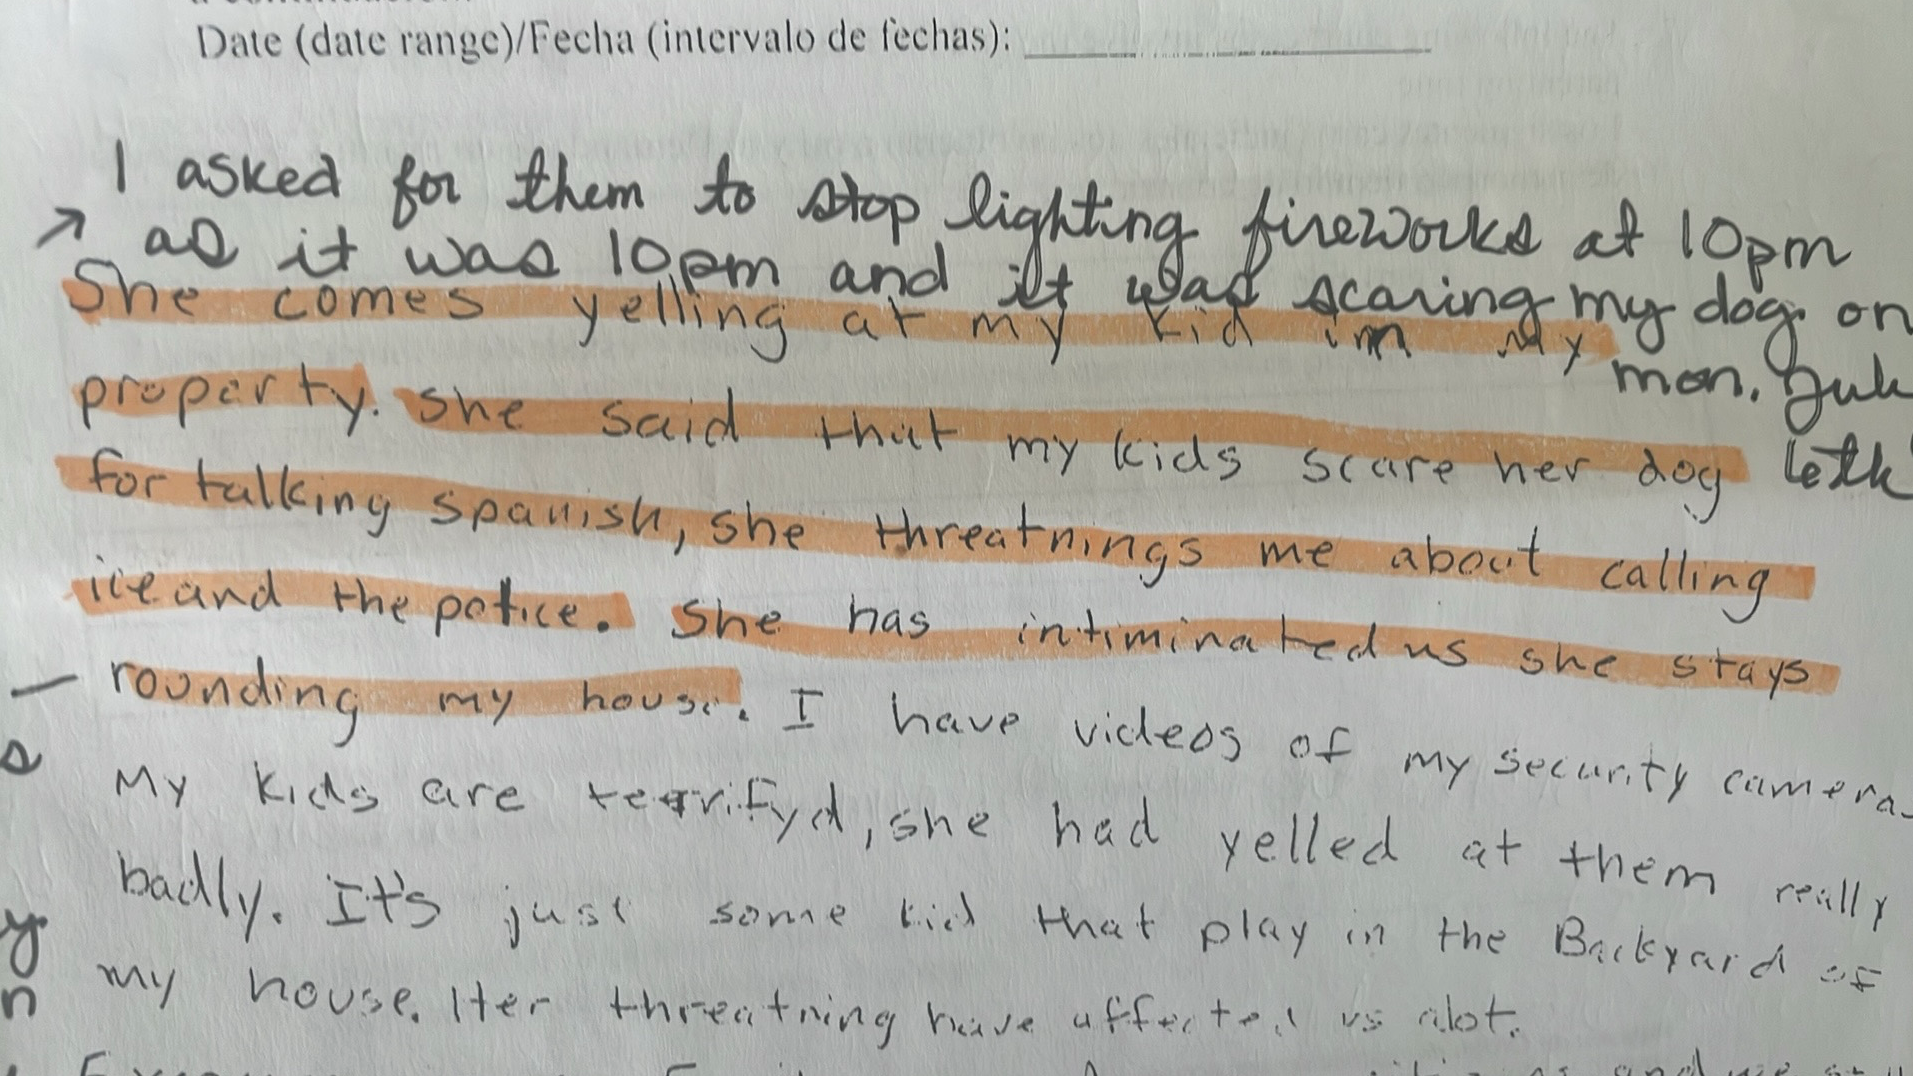 Date (date range)/Fecha (intervalo de fechas):
I asked for them to stop lighting fireworks at 10pm
as it was 10pm and it was scaring my dog. on
mon. July
She comes yelling at my kid im my
property. she said that my kids scare her dog
for talking spanish, she threatnings me about calling
ice and the police. She has intiminated us she stays
rounding my house. I have videos of my security camera.
My kids are terrifyd, she had yelled at them really
badly. It's just some kid that play in the Backyard of
my house. Her threatning have affected us alot.